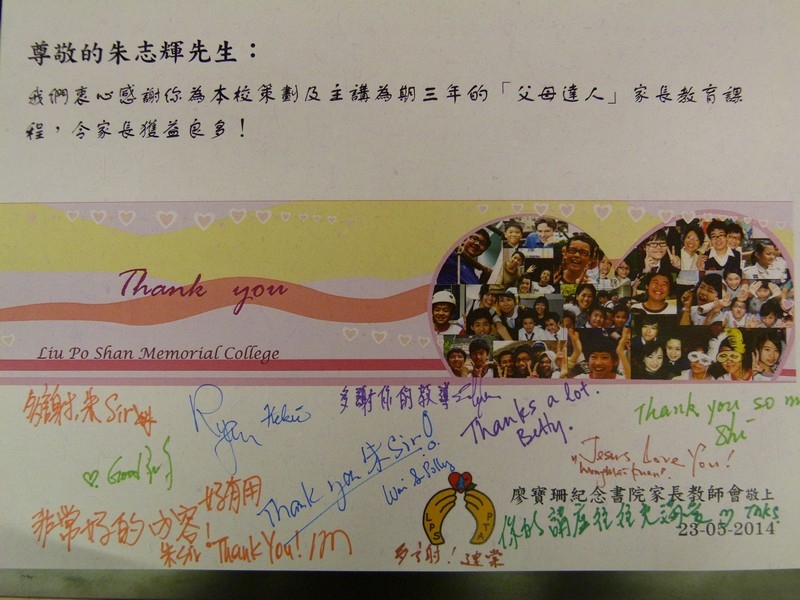 尊敬的朱志輝先生：
我們衷心感謝你為本校策劃及主講為期三年的「父母達人」家長教育課
程，令家長獲益良多！
Thank you
Liu Po Shan Memorial College
多謝 朱 Sir
Ryan
多謝你的教導
Thanks a lot.
Betty.
Thank you so m
Shi
Good
Thank you 朱 Sir!
Wai & Polly
Jesus Love You!
好有用
非常好的内容!
朱 Sir! Thank You!
LPS PTA
廖寶珊紀念書院家長教師會敬上
你的講座往往充滿
23-05-2014
多謝!